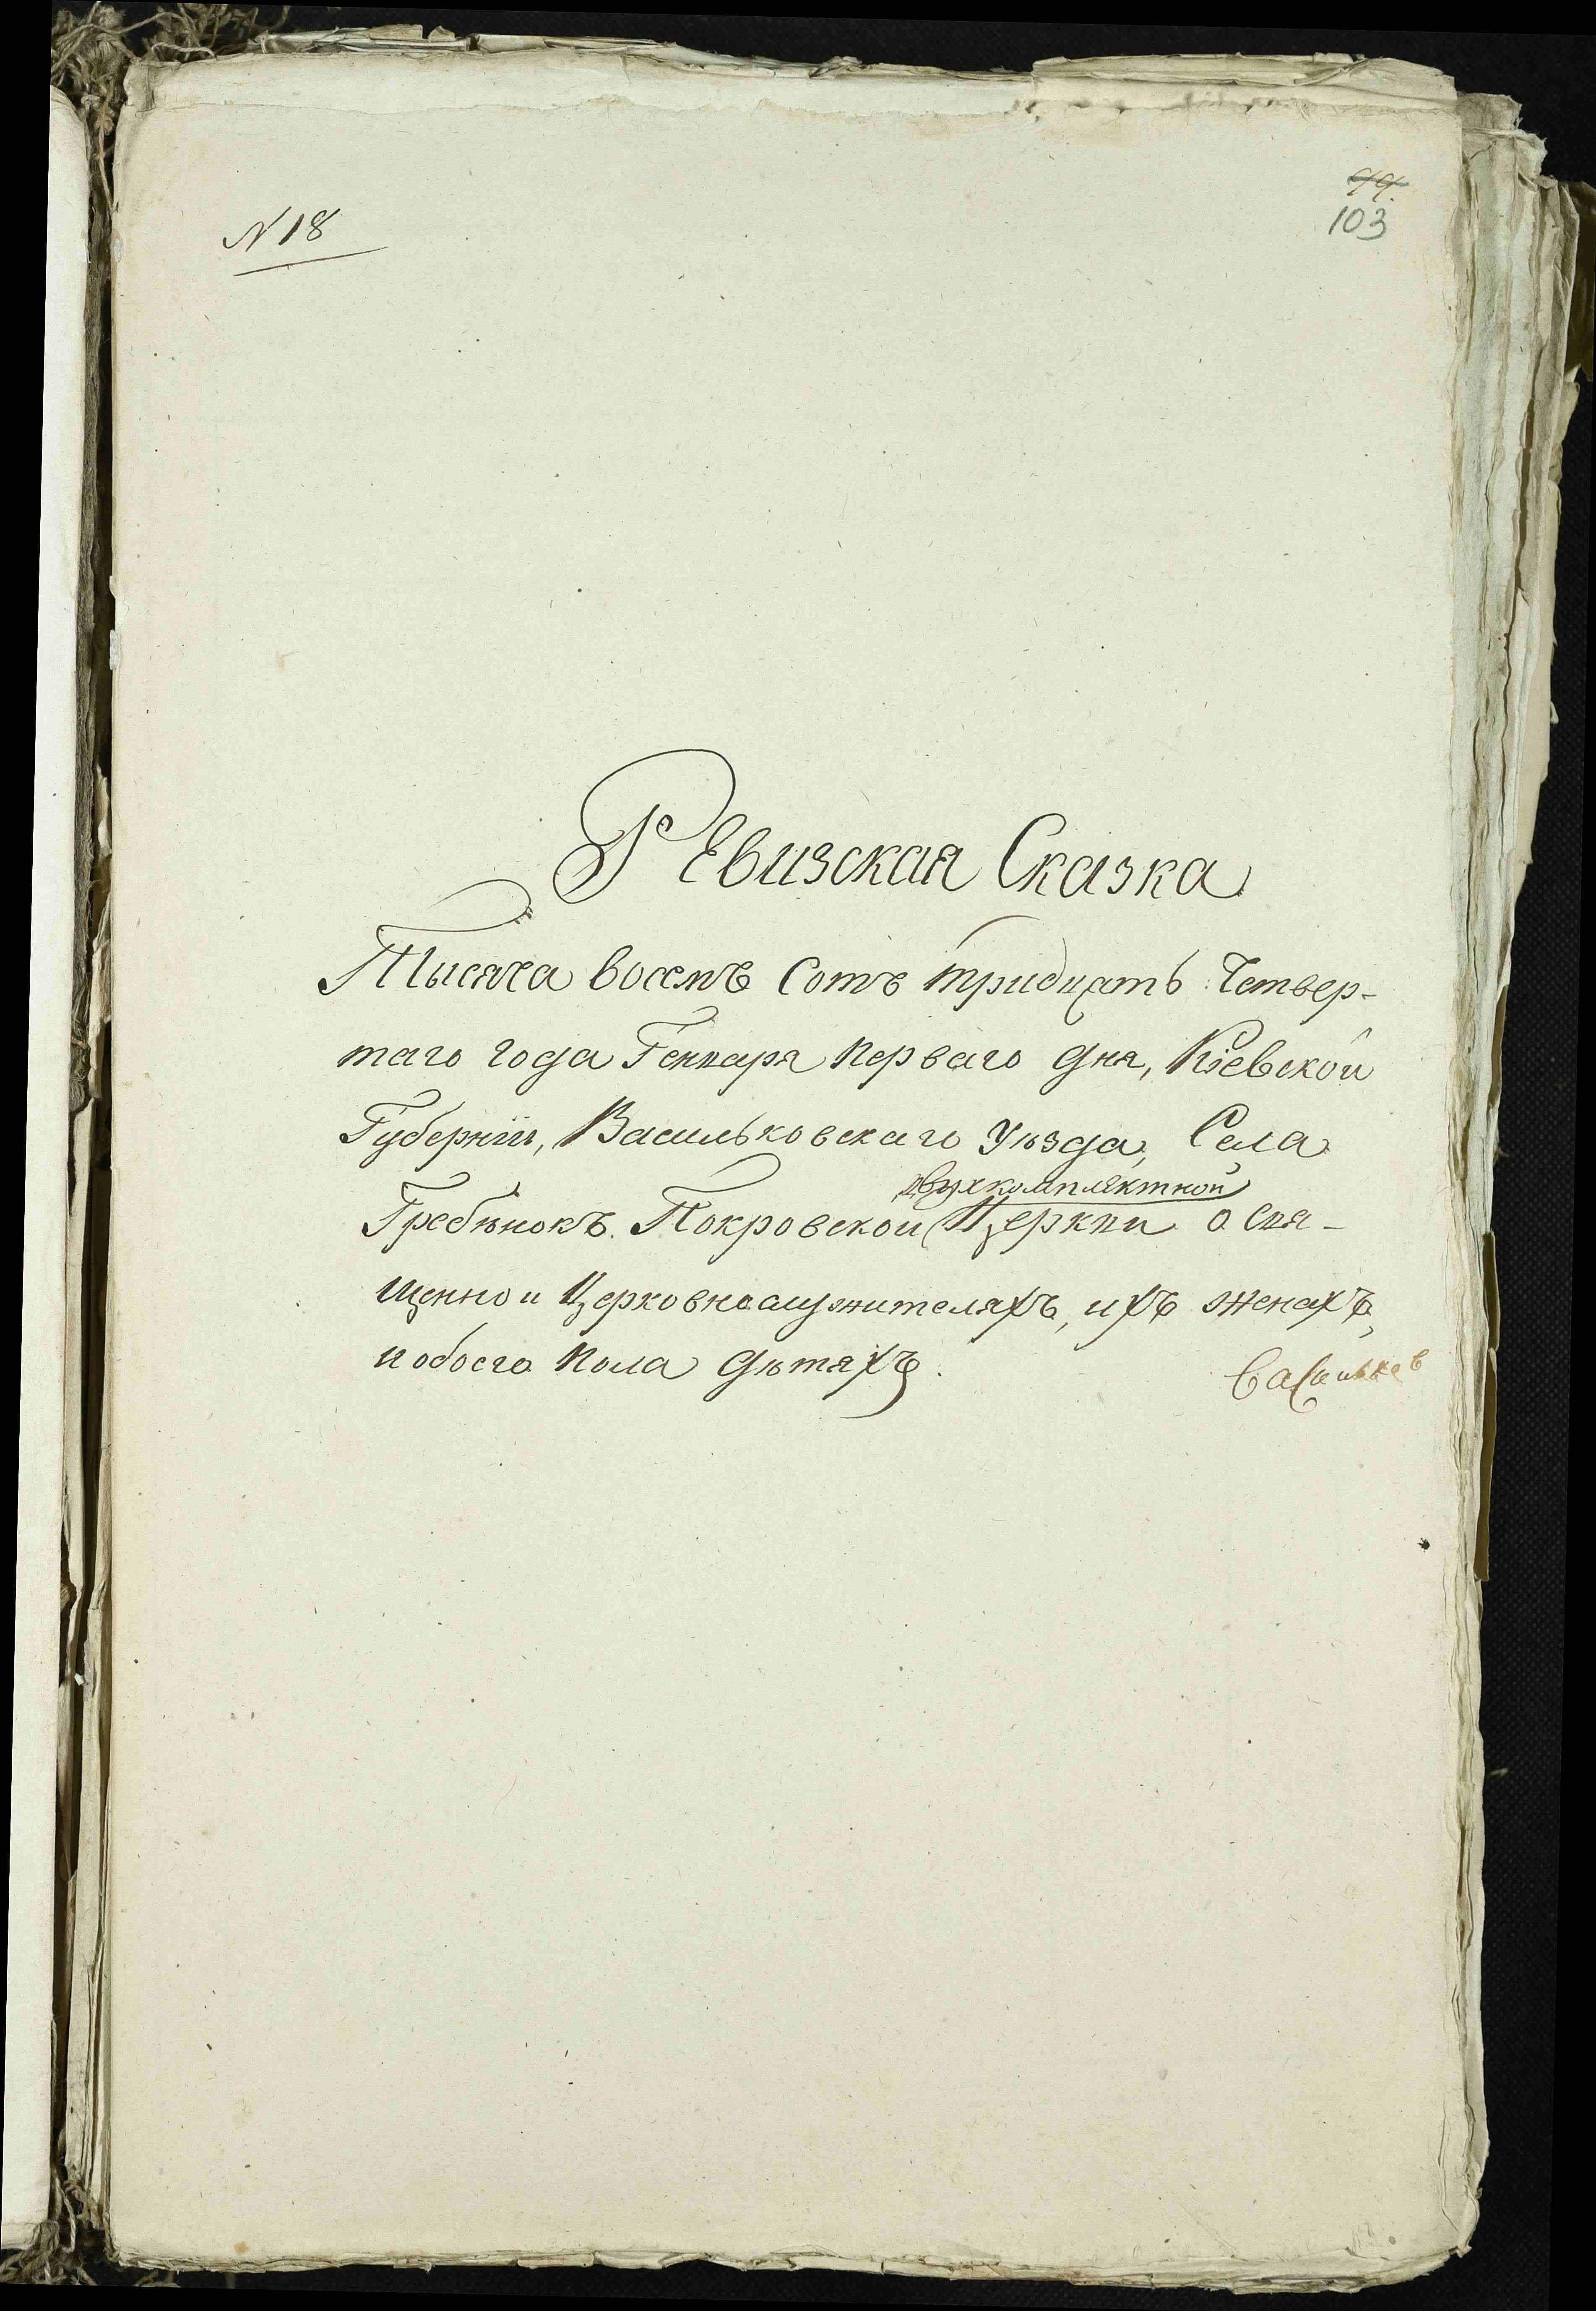 N 18
99.
103
Ревизская Сказка
Тысяча восемъ Сотъ тридцать Четвер-
таго года Генваря перваго дня, Кіевской
Губерніи, Васильковскаго Уѣзда, Села
двухкомплектной
Гребѣнокъ. Покровской Церкви о Свя-
щенно и Церковнослужителяхъ, ихъ женахъ,
и обоего пола дѣтяхъ.